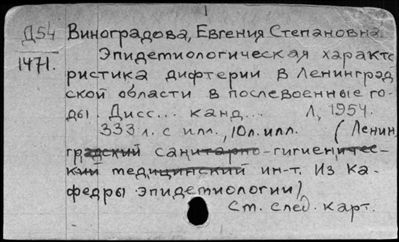 Д54 Виноградова, Евгения Степановна.
1471. Эпидемиологическая характе
ристика дифтерии в Ленинград
ской области в послевоенные го-
ды. Дисс... канд... Л, 1954.
333 л. с илл., 10 л. илл. (Ленин
градский санитарно-гигиениче-
кий медицинский ин-т. Из ка-
федры эпидемиологии)
См. след. карт.